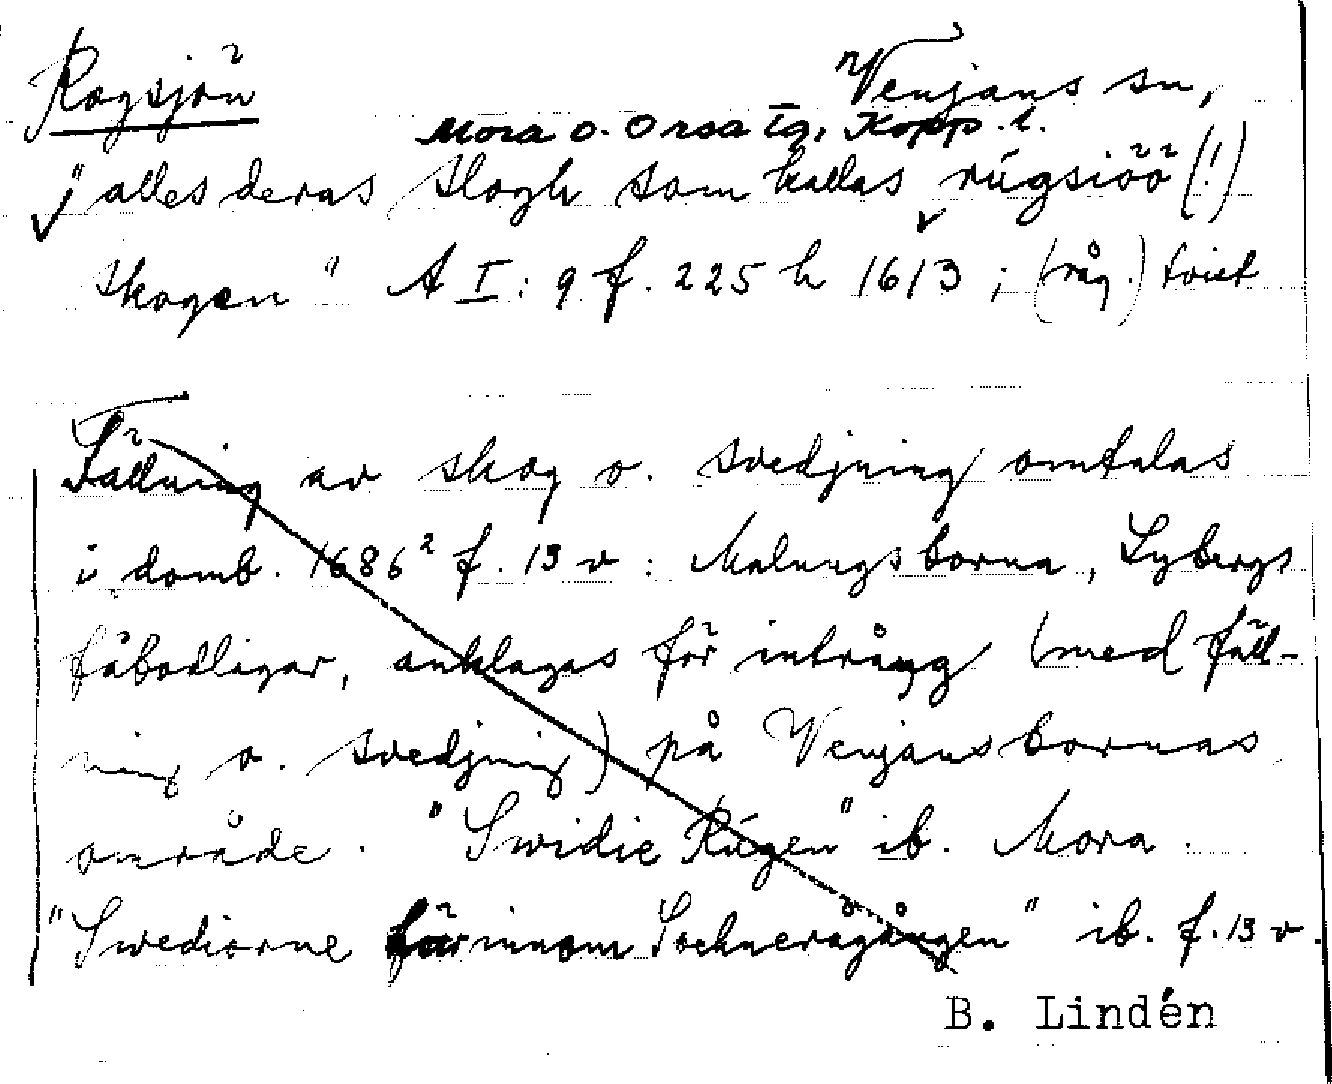 Rogsjön
Venjans sn,
Mora o. Orsa tg, Kopp. l.
"alles deras skogh som kallas rúgsiöö (!)
skogen" A I: 9 f. 225 h 1613; (råg.) tvist
Fällning av skog o. svedjning omtalas
i domb. 1686² f. 13 v : Malungsborna, Lybergs
fäbodlagar, anklagas för intrång (med fäll-
ning o. svedjning) på Venjansbornas
område. "Swidie Rúgen" ib. Mora.
"Swediorne för innom Sochnerågången" ib. f. 13 v.
B. Lindén